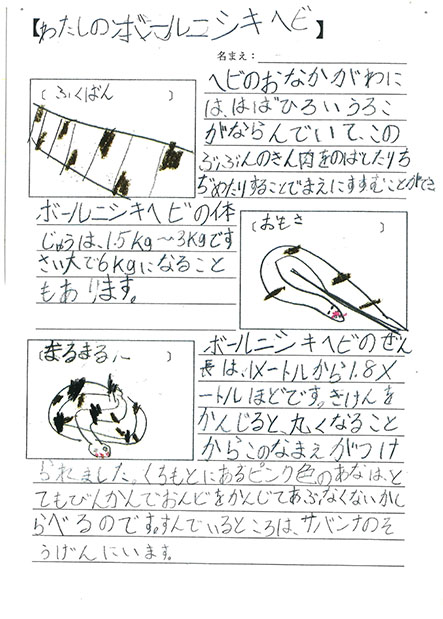 【わたしのボールニシキヘビ】
名まえ：
〔ふくばん〕
ヘビのおなかがわに
は、はばひろいうろこ
がならんでいて、この
ぶぶんのきん肉をのばしたりち
ぢめたりすることでまえにすすむことができ
ボールニシキヘビの体
じゅうは、1.5kg～3kgです
さい大で6kgになること
もあります。
〔おもさ〕
〔まるまる〕
ボールニシキヘビのぜん
長は、1メートルから1.8メ
ートルほどです。きけんを
かんじると、丸くなること
からこのなまえがつけ
られました。くちもとにあるピンク色のあなは、と
てもびんかんでおんどをかんじてあぶなくないかし
らべるのです。すんでいるところは、サバンナのそ
うげんにいます。